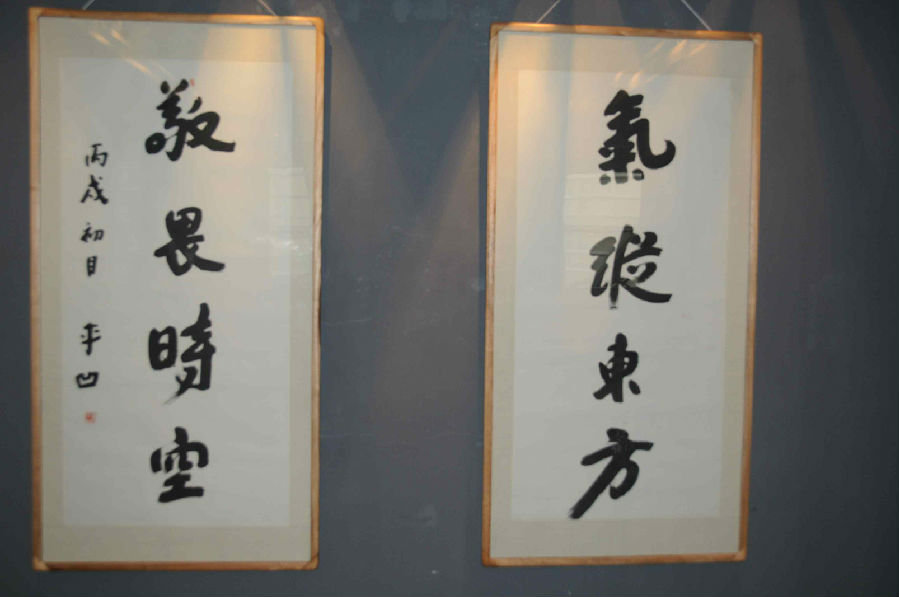 氣縱東方
敬畏時空
丙戌初月 平凹